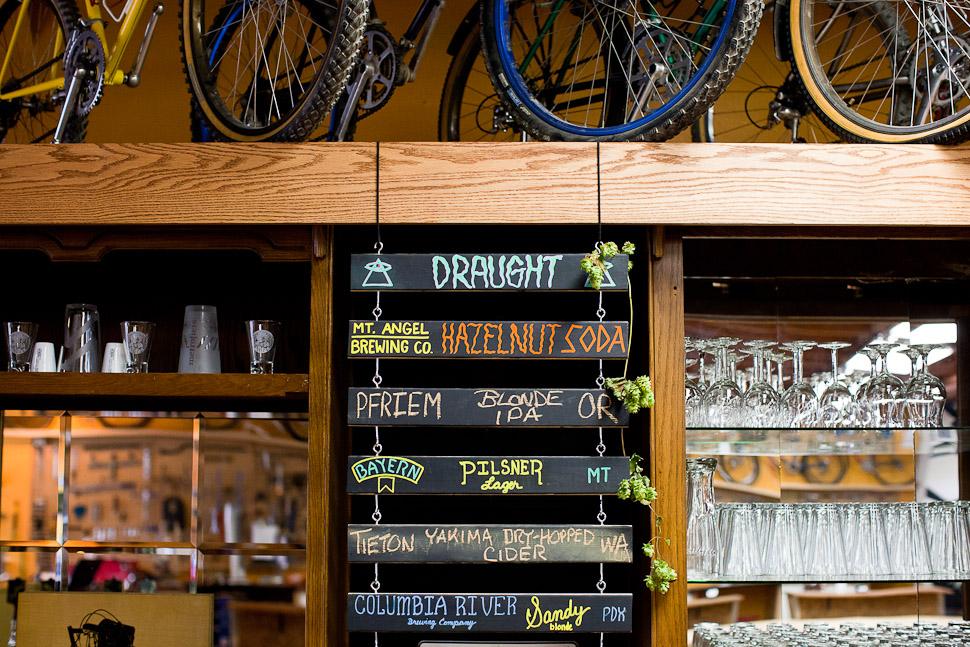 DRAUGHT
MT. ANGEL
BREWING CO.
HAZELNUT SODA
PFRIEM
BLONDE
IPA
OR
BAYERN
PILSNER
Lager
MT
TIETON
YAKIMA DRY-HOPPED
CIDER
WA
COLUMBIA RIVER
Brewing Company
Sandy
blonde
PDX